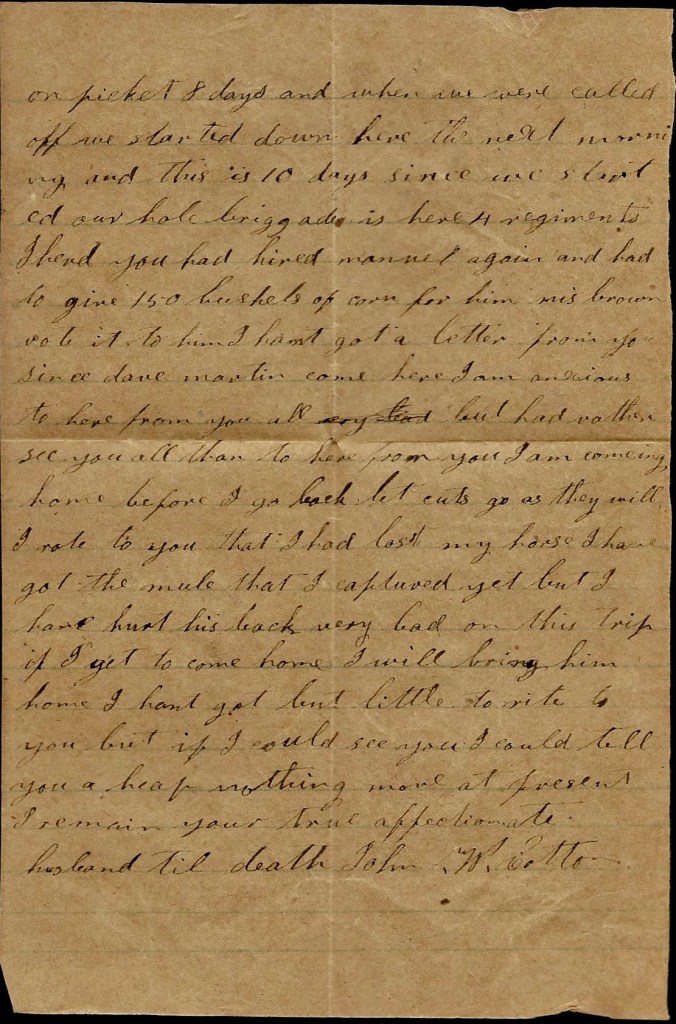 on picket 8 days and when we were called
off we started down here the next morni
ng and this is 10 days since we start
ed our hole briggade is here 4 regiments
I herd you had hired manuel again and had
to give 150 bushels of corn for him mis brown
rote it to him I hant got a letter from yo
since dave martin come here I am anxious
to here from you all very bad but had rather
see you all than to here from you I am comeing
home before I go back let cuts go as they will
I rote to you that I had lost my horse I have
got the mule that I captured yet but I
have hurt his back very bad on this trip
if I get to come home I will bring him
home I hant got but little to rite to
you but if I could see you I could tell
you a heap nothing more at present
I remain your true affectionate
husband til death John W. Cotton